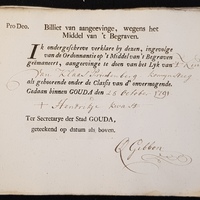 Pro Deo. Billiet van aangeevinge, wegens het
Middel van 't Begraven.
IK ondergeschreven verklare by dezen, ingevolge
van de Ordonnantie op 't Middel van 't Begraven
geëmaneert, aangeevinge te doen van het Lyk van
van
als gehoorende onder de Classis van d'onvermogende.
Gedaan binnen GOUDA den 28 October 179
Ter Secretarye der Stad GOUDA,
geteekend op datum als boven.